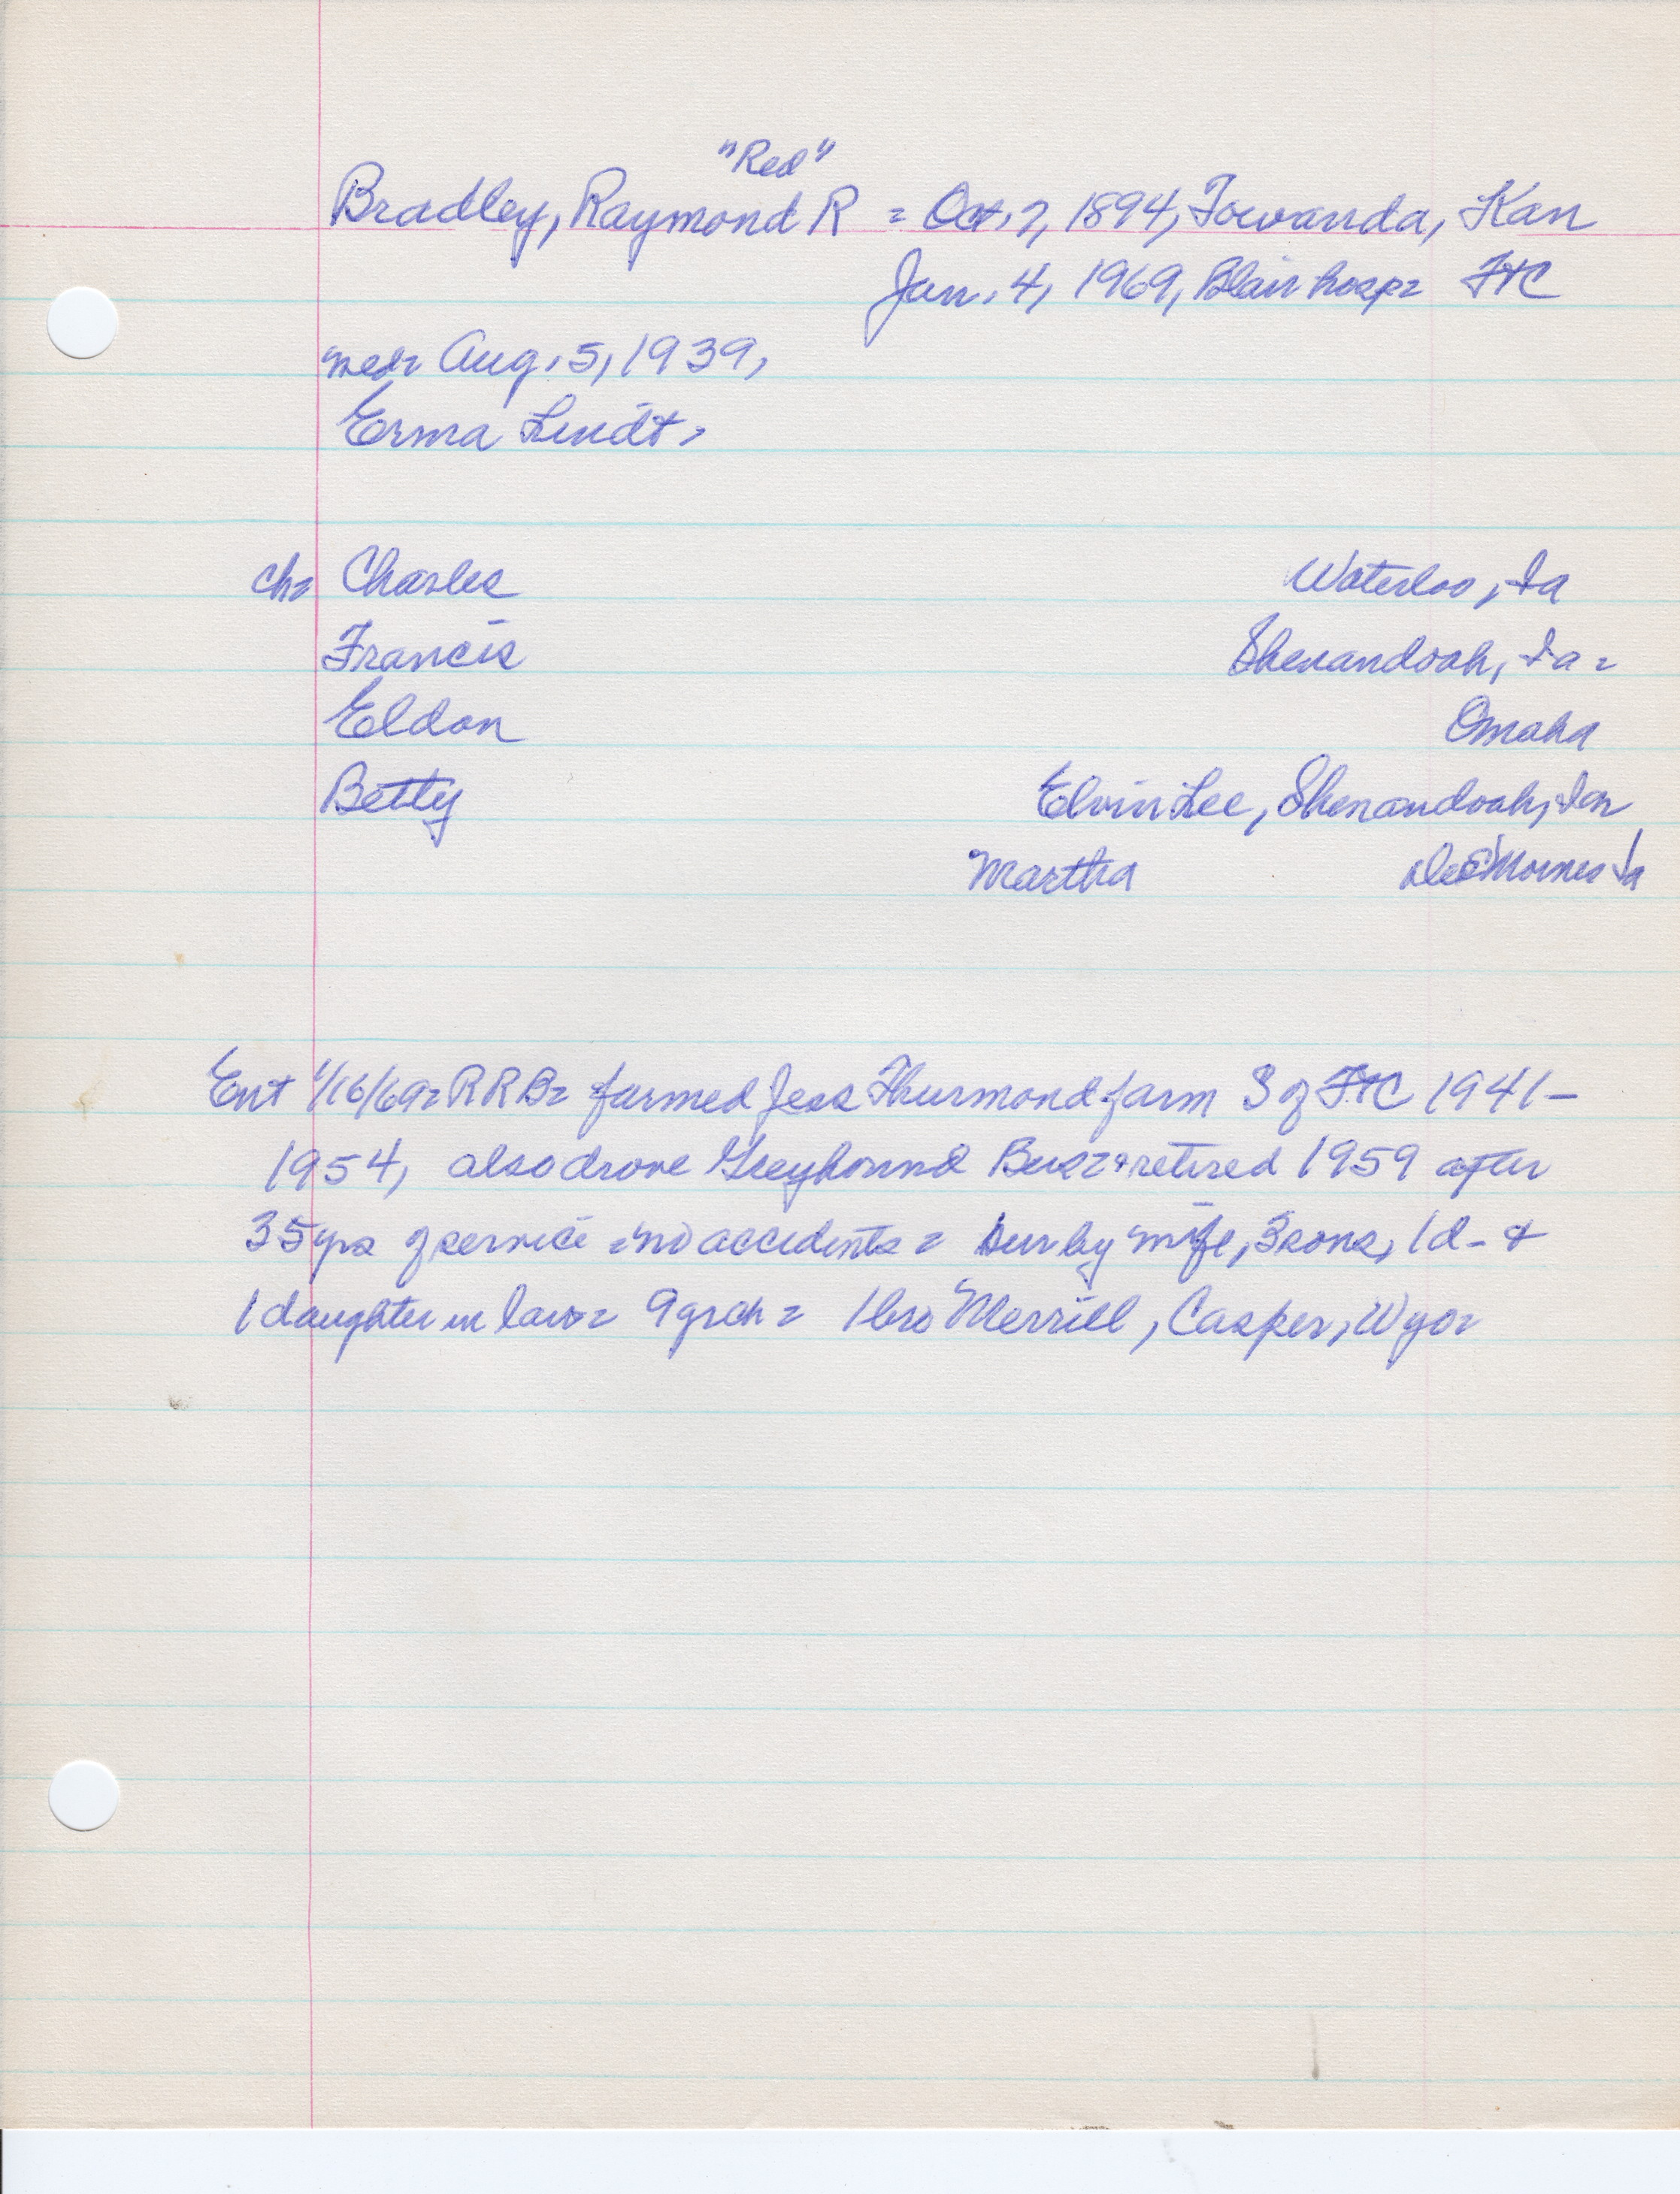 "Red"
Bradley, Raymond R = Oct. 7, 1894, Towanda, Kan
Jan. 4, 1969, Blair hosp= FtC
med= Aug. 5, 1939,
Erma Lindt,
ch= Charles Waterloo, Ia
Francis Shenandoah, Ia =
Eldon Omaha
Betty Elvin Lee, Shenandoah, Ia
Martha Des Moines Ia
Ent 1/16/69= RRB= farmed Jess Thurmond farm S of FtC 1941-
1954, also drove Greyhound Bus= + retired 1959 after
35 yrs of service = no accidents = Sur by wife, 3 sons, 1 d- &
1 daughter in law= 9 grch = 1 bro Merrill, Casper, Wyo=